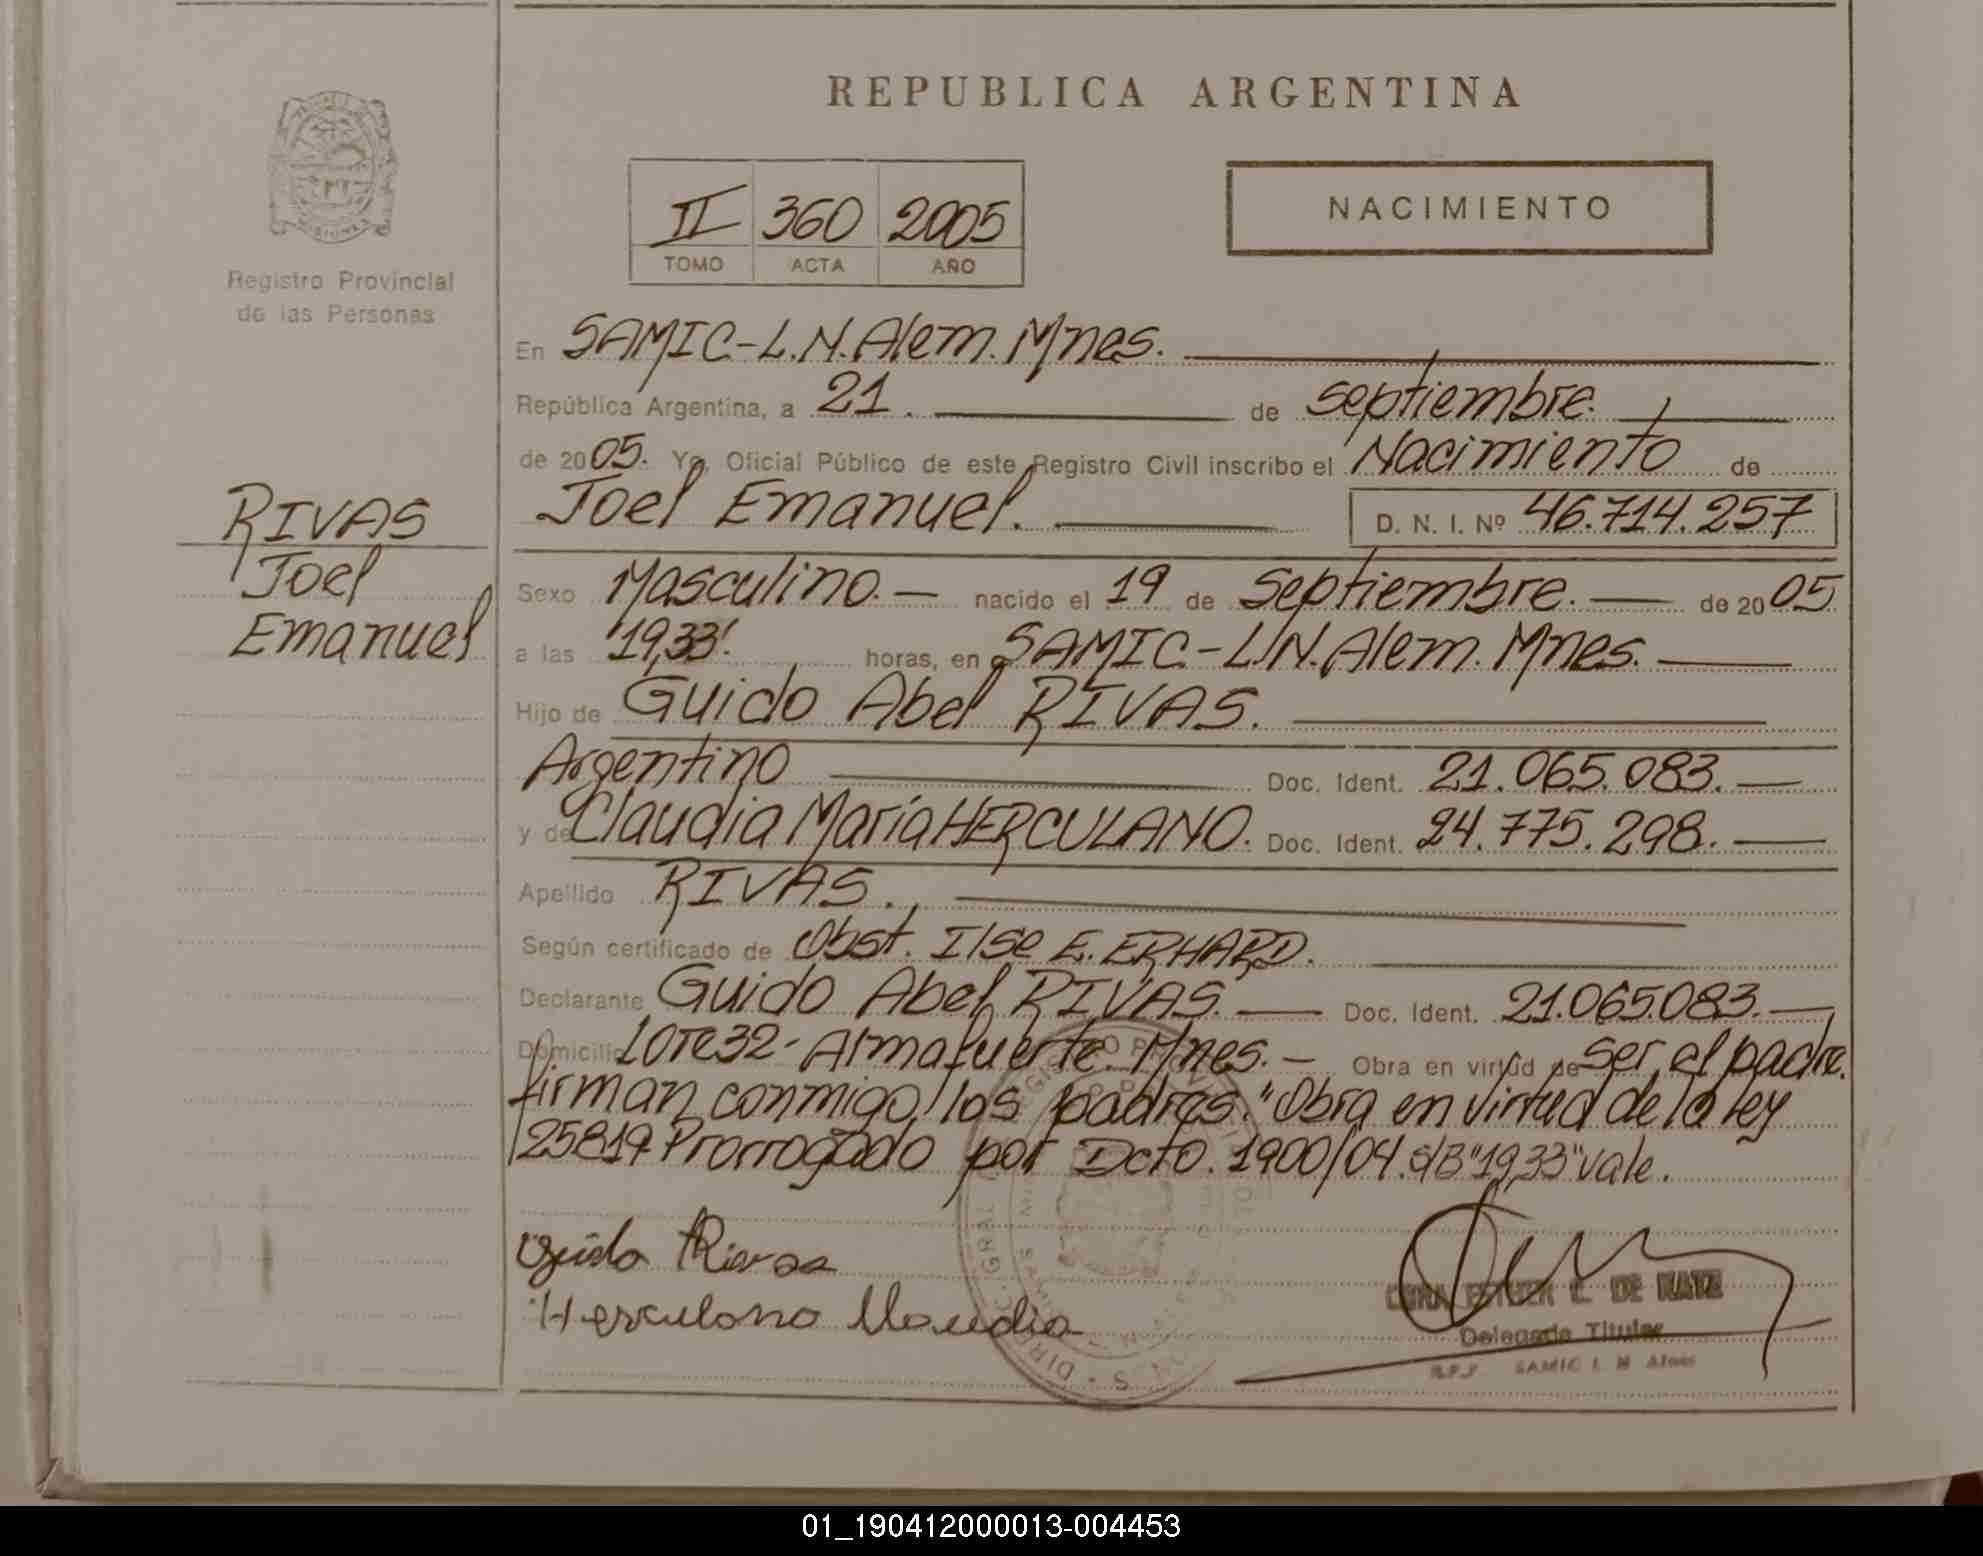 REPUBLICA ARGENTINA
II 360 2005
TOMO ACTA AÑO
NACIMIENTO
MISIONES
Registro Provincial
de las Personas
RIVAS
Joel
Emanuel
En SAMIC-L.N.Alem. Mnes.
República Argentina, a 21. de septiembre.
de 2005. Yo, Oficial Público de este Registro Civil inscribo el Nacimiento de
Joel Emanuel. D. N. I. Nº 46.714.257
Sexo Masculino.- nacido el 19 de Septiembre. de 2005
a las "19,33" horas, en SAMIC-L.N.Alem. Mnes.
Hijo de Guido Abel RIVAS.
Argentino Doc. Ident. 21.065.083.
y de Claudia María HERCULANO. Doc. Ident. 24.775.298.
Apellido RIVAS.
Según certificado de Obst. Ilse E. ERHARD.
Declarante Guido Abel RIVAS. Doc. Ident. 21.065.083.
Domicilio Lote 32- Almafuerte. Mnes.- Obra en virtud de ser el padre.
firman conmigo los padres. "Obra en virtud de la ley
25819 Prorrogado por Dcto. 1900/04. s/B "19,33" vale.
Guido Rivas
Herculano Claudia
ESTHER C. DE KATZ
Delegada Titular
R.P.P. SAMIC L N Alem
01_190412000013-004453